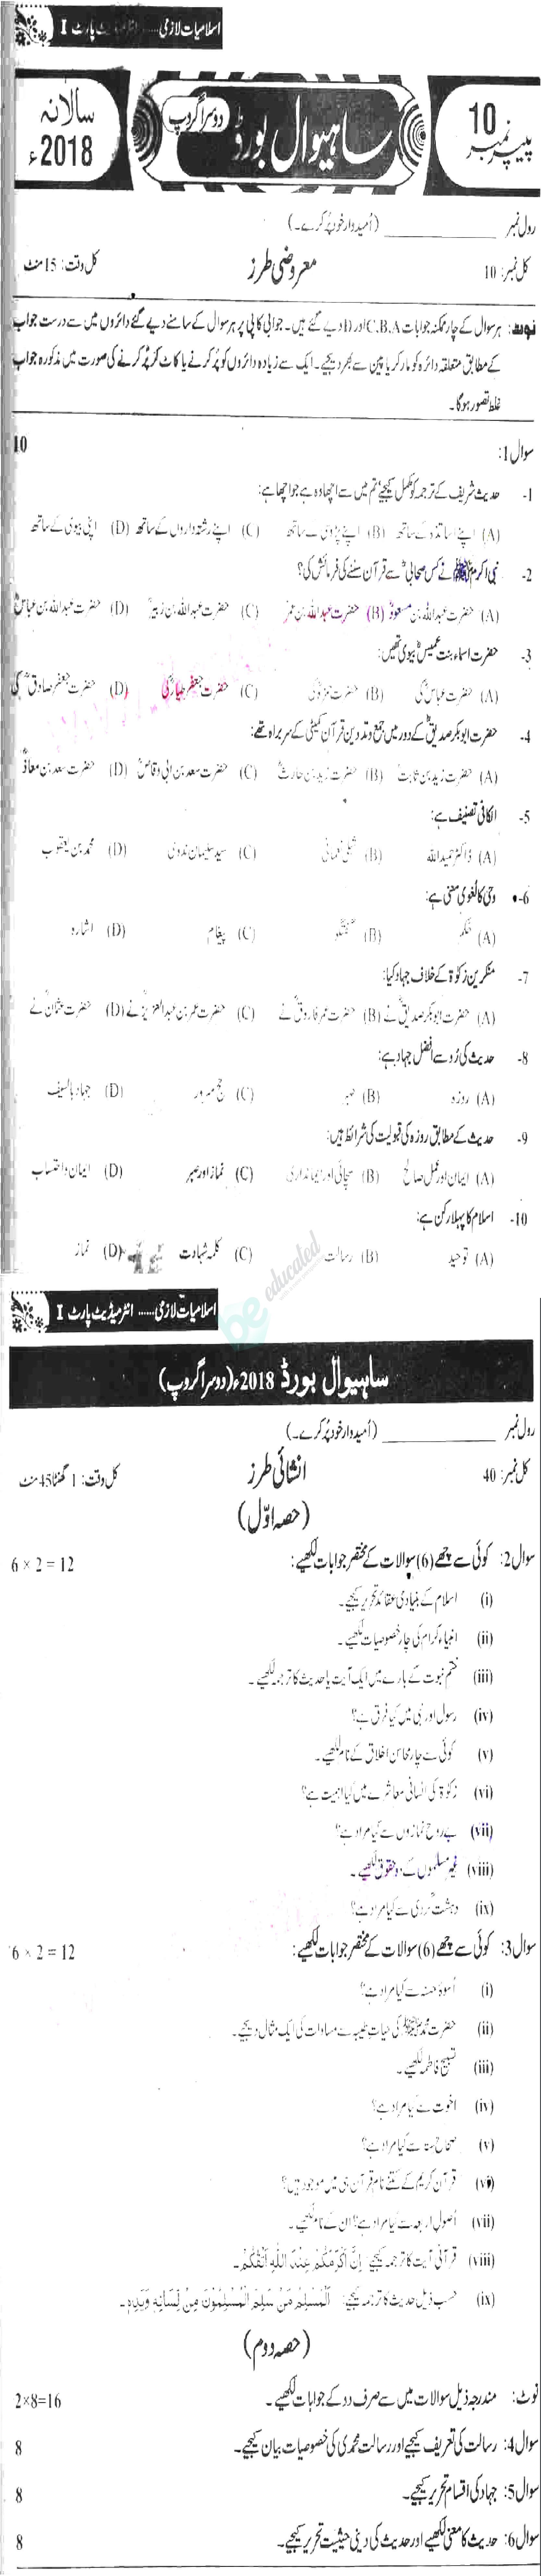 اسلامیات لازمی ..... انٹرمیڈیٹ پارٹ I
سالانہ 2018ء
ساہیوال بورڈ دوسرا گروپ
پیپر نمبر 10
رول نمبر ____________ (اُمیدوار خود پُر کرے۔)
کل نمبر: 10 معروضی طرز کل وقت: 15 منٹ
نوٹ: ہر سوال کے چار ممکنہ جوابات C،B،A اور D دیے گئے ہیں۔ جوابی کاپی پر ہر سوال کے سامنے دیے گئے دائروں میں سے درست جواب
کے مطابق متعلقہ دائرہ کو مارکر یا پین سے بھر دیجیے۔ ایک سے زیادہ دائروں کو پُر کرنے یا کاٹ کر پُر کرنے کی صورت میں مذکورہ جواب
غلط تصور ہوگا۔
سوال 1: 10
1- حدیث شریف کے ترجمہ کو مکمل کیجیے تم میں سے اچھا وہ ہے جو اچھا ہے:
(A) اپنے اساتذہ کے ساتھ (B) اپنے پڑوسی کے ساتھ (C) اپنے رشتہ داروں کے ساتھ (D) اپنی بیوی کے ساتھ
2- نبی اکرم ﷺ نے کس صحابیؓ سے قرآن سننے کی فرمائش کی؟
(A) حضرت عبداللہ بن مسعودؓ (B) حضرت عبداللہ بن عمرؓ (C) حضرت عبداللہ بن زبیرؓ (D) حضرت عبداللہ بن عباسؓ
3- حضرت اسماء بنت عمیسؓ بیوی تھیں:
(A) حضرت عباسؓ کی (B) حضرت حمزہؓ کی (C) حضرت جعفر طیارؓ کی (D) حضرت جعفر صادقؒ کی
4- حضرت ابوبکر صدیقؓ کے دور میں جمع و تدوین قرآن کمیٹی کے سربراہ تھے:
(A) حضرت زید بن ثابتؓ (B) حضرت زید بن حارثؓ (C) حضرت سعد بن ابی وقاصؓ (D) حضرت سعد بن معاذؓ
5- الکافی تصنیف ہے:
(A) ڈاکٹر حمید اللہ (B) شبلی نعمانی (C) سید سلیمان ندوی (D) محمد بن یعقوب
6- وحی کا لغوی معنی ہے:
(A) فکر (B) گفتگو (C) پیغام (D) اشارہ
7- منکرین زکوٰۃ کے خلاف جہاد کیا:
(A) حضرت ابوبکر صدیقؓ نے (B) حضرت عمر فاروقؓ نے (C) حضرت عمر بن عبدالعزیزؒ نے (D) حضرت عثمانؓ نے
8- حدیث کی رُو سے افضل جہاد ہے:
(A) روزہ (B) صبر (C) حج مبرور (D) جہاد بالسیف
9- حدیث کے مطابق روزہ کی قبولیت کی شرائط ہیں:
(A) ایمان اور عمل صالح (B) سچائی اور ایمانداری (C) نماز اور صبر (D) ایمان و احتساب
10- اسلام کا پہلا رکن ہے:
(A) توحید (B) رسالت (C) کلمہ شہادت (D) نماز
be educated
اسلامیات لازمی ..... انٹرمیڈیٹ پارٹ I
ساہیوال بورڈ 2018ء (دوسرا گروپ)
رول نمبر ____________ (اُمیدوار خود پُر کرے۔)
کل نمبر: 40 انشائی طرز کل وقت: 1 گھنٹا 45 منٹ
(حصہ اوّل)
سوال 2: کوئی سے چھے (6) سوالات کے مختصر جوابات لکھیے: 6 × 2 = 12
(i) اسلام کے بنیادی عقائد تحریر کیجیے۔
(ii) انبیاء کرام کی چار خصوصیات لکھیے۔
(iii) ختم نبوت کے بارے میں ایک آیت یا حدیث کا ترجمہ لکھیے۔
(iv) رسول اور نبی میں کیا فرق ہے؟
(v) کوئی سے چار محاسن اخلاق کے نام لکھیے۔
(vi) زکوٰۃ کی انسانی معاشرے میں کیا اہمیت ہے؟
(vii) بے روح نمازوں سے کیا مراد ہے؟
(viii) غیر مسلموں کے دو حقوق لکھیے۔
(ix) دہشت گردی سے کیا مراد ہے؟
سوال 3: کوئی سے چھے (6) سوالات کے مختصر جوابات لکھیے: 6 × 2 = 12
(i) اُسوۂ حسنہ سے کیا مراد ہے؟
(ii) حضرت محمد ﷺ کی حیاتِ طیبہ سے مساوات کی ایک مثال دیجیے۔
(iii) تسبیح فاطمہ لکھیے۔
(iv) اخوت سے کیا مراد ہے؟
(v) صحاح ستہ سے کیا مراد ہے؟
(vi) قرآن کریم کے کتنے نام قرآن ہی میں موجود ہیں؟
(vii) اُصول اربعہ سے کیا مراد ہے؟ ان کے نام لکھیے۔
(viii) قرآنی آیت کا ترجمہ کیجیے: اِنَّ اَكْرَمَكُمْ عِنْدَ اللّٰهِ اَتْقٰكُمْ۔
(ix) حسب ذیل حدیث کا ترجمہ کیجیے: اَلْمُسْلِمُ مَنْ سَلِمَ الْمُسْلِمُوْنَ مِنْ لِّسَانِهٖ وَيَدِهٖ۔
(حصہ دوم)
نوٹ: مندرجہ ذیل سوالات میں سے صرف دو کے جوابات لکھیے۔ 2×8=16
سوال 4: رسالت کی تعریف کیجیے اور رسالت محمدی کی خصوصیات بیان کیجیے۔ 8
سوال 5: جہاد کی اقسام تحریر کیجیے۔ 8
سوال 6: حدیث کا معنی لکھیے اور حدیث کی دینی حیثیت تحریر کیجیے۔ 8